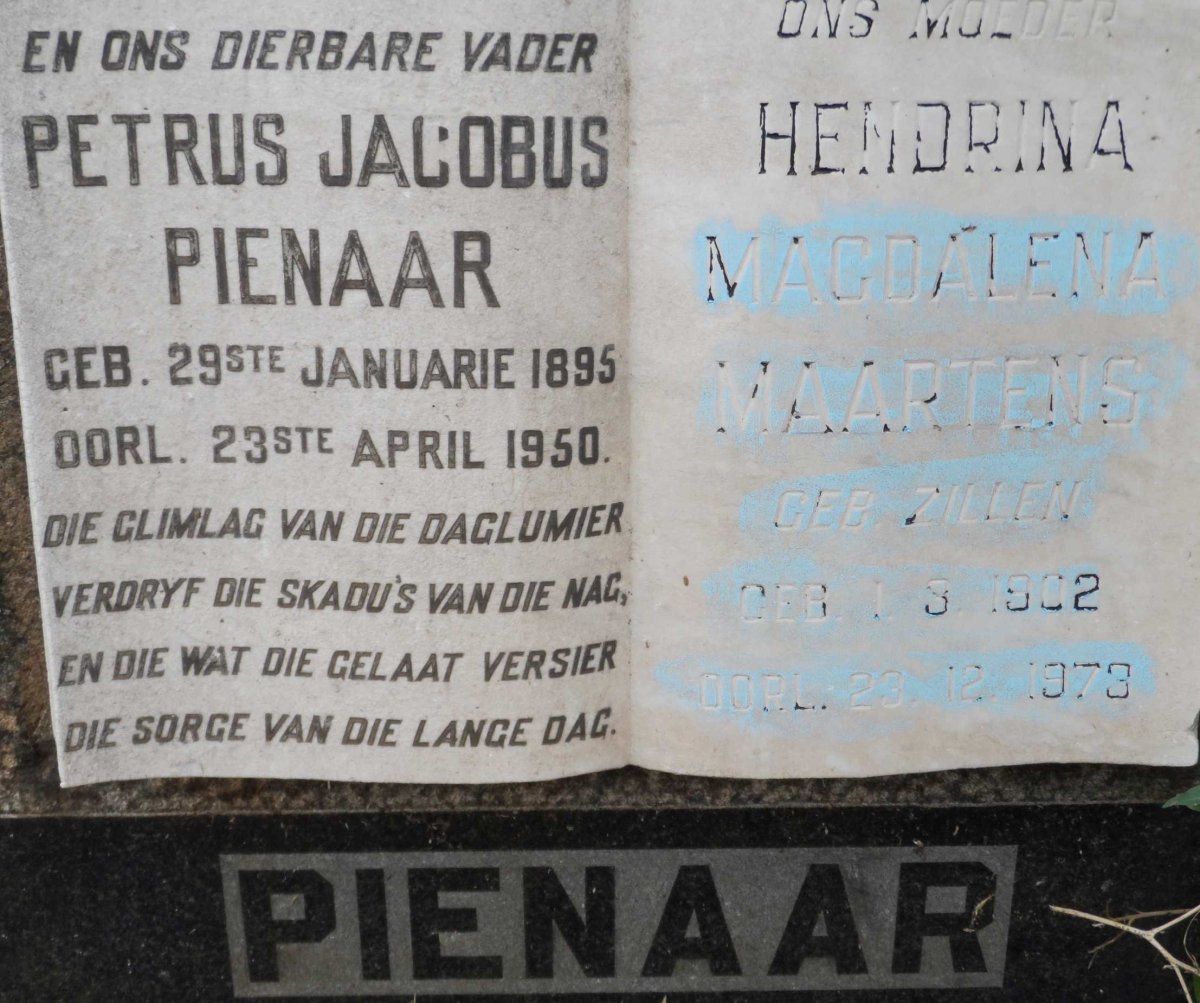 EN ONS DIERBARE VADER
PETRUS JACOBUS
PIENAAR
GEB. 29STE JANUARIE 1895
OORL. 23STE APRIL 1950.
DIE GLIMLAG VAN DIE DAGLUMIER
VERDRYF DIE SKADU'S VAN DIE NAG,
EN DIE WAT DIE GELAAT VERSIER
DIE SORGE VAN DIE LANGE DAG.
ONS MOEDER
HENDRINA
MAGDALENA
MAARTENS
GEB. ZILLEN
GEB. 1. 3. 1902
OORL. 23. 12. 1973
PIENAAR